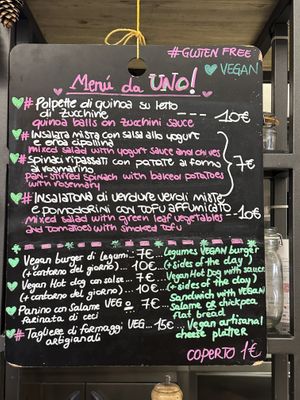 #GLUTEN FREE
♥ VEGAN
Menú da UNO!
♥# Polpette di quinoa su letto
di zucchine --- 10€
quinoa balls on zucchini sauce
♥# INSALATA MISTA CON SALSA ALLO YOGURT
E ERBA CIPOLLINA
mixed salad with yogurt sauce and chives
♥# SPINACI RIPASSATI CON PATATE AL FORNO
AL ROSMARINO
7€
pan-stirred spinach with baked potatoes
with rosemary
♥# INSALATONA DI VERDURE VERDI MISTE
E POMODORINI CON TOFU AFFUMICATO --- 10€
mixed salad with green leaf vegetables
and tomatoes with smoked tofu
♥ Vegan burger di legumi... 7€ --- Legumes VEGAN burger
(+ contorno del giorno) ... 10€ (+ sides of the day)
♥ Vegan Hot dog con salse ... 7€ --- Vegan Hot Dog with sauce
(+ contorno del giorno) ... 10€ (+ sides of the day)
♥ Panino con Salame VEG o 7€ --- Sandwich with VEGAN
farinata di ceci SALAME or chickpea
flat bread
♥# Tagliere di formaggi VEG ... 15€ --- Vegan artisanal
artigianali cheese platter
COPERTO 1€